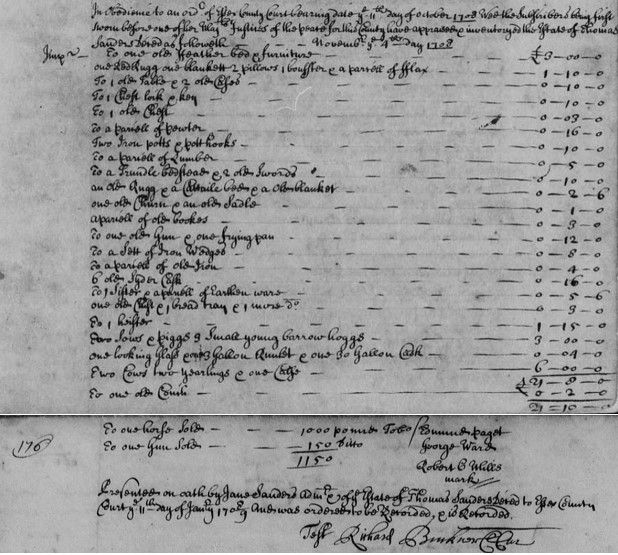 In obedience to an ordr of Essex County Court bearing date ye 11th day of october 1708 Wee the Subscribers being first
sworn before one of her Maty Justices of the peace for this County have appraised & inventoryed the Estate of Thomas
Sanders dec'd as followeth November ye 4th day 1708
Imprs To one old ffeather bed & furniture £ 3 - 00 - 0
one Bed Rugg one blankett 2 pillows 1 boulster & a parcell of fflax 1 - 10 - 0
To 1 old Table & 2 old Chests 0 - 10 - 0
To 1 Chest lock & key 0 - 10 - 0
To 1 old Chest 0 - 03 - 0
To a parcell of pewter 0 - 16 - 0
Two Iron potts & pott hooks 0 - 10 - 0
To a parcell of Lumber 0 - 5 - 0
To a Trundle bedstead & 2 old Swords 0 - 10 - 0
an old Rugg & a Cattaile bed & a old blanket 0 - 2 - 6
one old Churn & an old Sadle 0 - 1 - 0
a parcell of old bookes 0 - 3 - 0
To one old Gun & one frying pan 0 - 12 - 0
To a Sett of Iron Wedges 0 - 8 - 0
To a parcell of old Iron 0 - 4 - 0
6 old Syder Cask 0 - 16 - 0
To 1 Sifter & a parcell of Earthen ware 0 - 5 - 6
one old Chest & 1 bread tray & 1 more do 0 - 3 - 0
To 1 heifter 1 - 15 - 0
Two Sows & piggs 9 Small young barrow hoggs 3 - 00 - 0
one looking Glass & one 3 Gallon Runlet & one 30 Gallon Cask 0 - 04 - 0
Two Cows two yearlings & one Calfe 6 - 00 - 0
£ 21 - 8 - 0
To one old Couch 0 - 2 - 0
21 - 10 - 0
To one horse Sold 1000 pounds Tobo
Edmund Paget
To one Gun Sold 150 ditto
George Ward
1150
176
Robert Mills
mark
Presented on oath by Jane Sanders admx of ye Estate of Thomas Sanders dec'd to Essex County
Court ye 11th day of Janry 1708/9 And was ordered to be Recorded, & is Recorded.
Test Richard Buckner Cl Cur